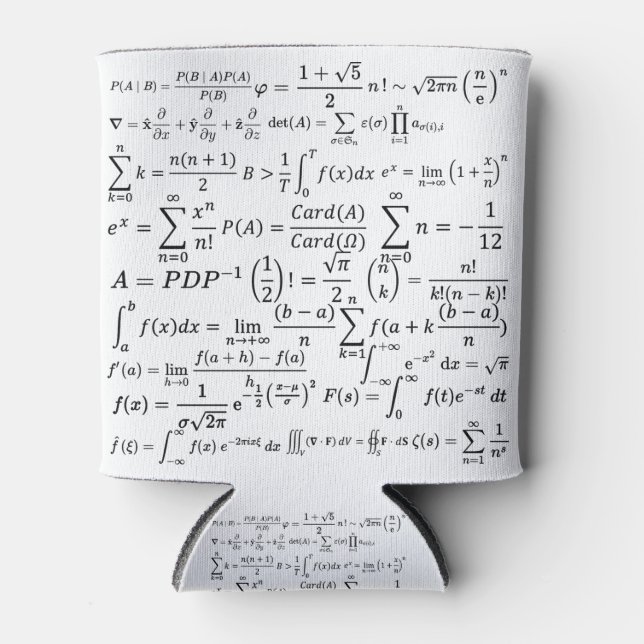 P(A | B) = P(B | A)P(A) / P(B) φ = 1 + √5 / 2 n! ~ √2πn (n/e)^n
∇ = x̂ ∂/∂x + ŷ ∂/∂y + ẑ ∂/∂z det(A) = ∑_{σ∈𝔖_n} ε(σ) ∏_{i=1}^{n} a_{σ(i),i}
∑_{k=0}^{n} k = n(n + 1) / 2 B > 1/T ∫_0^T f(x)dx e^x = lim_{n→∞} (1 + x/n)^n
e^x = ∑_{n=0}^{∞} x^n / n! P(A) = Card(A) / Card(Ω) ∑_{n=0}^{∞} n = − 1/12
A = PDP^{−1} (1/2)! = √π / 2 (n k) = n! / k!(n − k)!
∫_a^b f(x)dx = lim_{n→+∞} (b − a) / n ∑_{k=1}^{n} f(a + k (b − a) / n)
f′(a) = lim_{h→0} f(a + h) − f(a) / h ∫_{−∞}^{+∞} e^{−x^2} dx = √π
f(x) = 1 / σ√2π e^{−1/2 (x−μ / σ)^2} F(s) = ∫_0^∞ f(t)e^{−st} dt
f̂(ξ) = ∫_{−∞}^{∞} f(x) e^{−2πixξ} dx ∭_V (∇ · F) dV = ∯_S F · dS ζ(s) = ∑_{n=1}^{∞} 1 / n^s
P(A | B) = P(B | A)P(A) / P(B) φ = 1 + √5 / 2 n! ~ √2πn (n/e)^n
∇ = x̂ ∂/∂x + ŷ ∂/∂y + ẑ ∂/∂z det(A) = ∑_{σ∈𝔖_n} ε(σ) ∏_{i=1}^{n} a_{σ(i),i}
∑_{k=0}^{n} k = n(n + 1) / 2 B > 1/T ∫_0^T f(x)dx e^x = lim_{n→∞} (1 + x/n)^n
x^n Card(A) 1